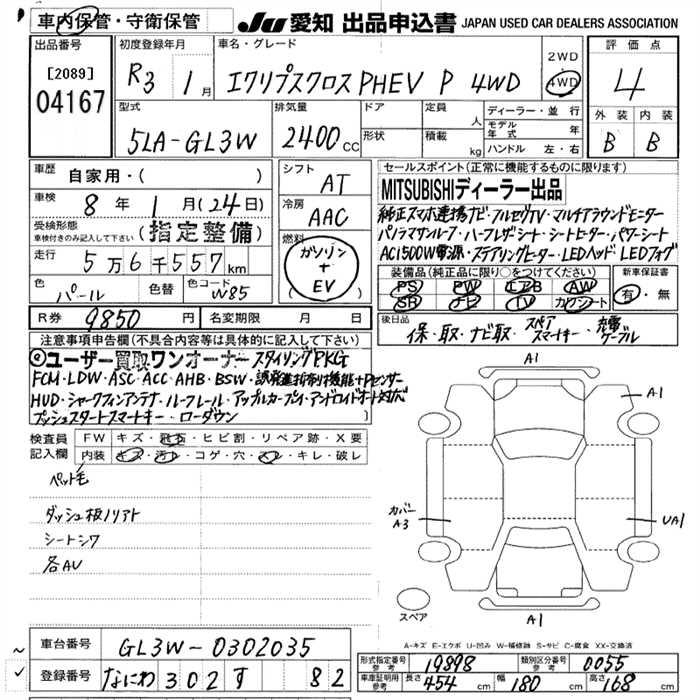 車内保管・守衛保管
JU 愛知 出品申込書 JAPAN USED CAR DEALERS ASSOCIATION
出品番号
[2089]
04167
初度登録年月
R3 1月
車名・グレード
エクリプスクロス PHEV P 4WD
2WD
4WD
評価点
4
型式
5LA-GL3W
排気量
2400cc
ドア
形状
定員 人
積載 kg
ディーラー・並行
モデル年式 年
ハンドル 左・右
外装 内装
B B
車歴
自家用・( )
車検 8年 1月(24日)
受検形態
車検付きのみ記入して下さい
(指定整備)
走行 5万6千557km
色 パール
色替
色コード W85
シフト AT
冷房 AAC
燃料
ガソリン
+
EV
R券 9850円
名変期限 月 日
セールスポイント(正常に機能するものに限ります)
MITSUBISHIディーラー出品
純正スマホ連携ナビ・フルセグTV・マルチアラウンドモニター
パノラマサンルーフ・ハーフレザーシート・シートヒーター・パワーシート
AC1500W電源・ステアリングヒーター・LEDヘッド・LEDフォグ
装備品(純正品に限り○をつけてください)
PS PW エアB AW
SR ナビ TV カワシート
新車保証書
有・無
後日品
保・取・ナビ取・スペアスマートキー・充電ケーブル
注意事項申告欄(不具合内容等は具体的に記入して下さい)
◎ユーザー買取ワンオーナー スタイリングPKG
FCM・LDW・ASC・ACC・AHB・BSW・誤発進抑制機能+Pセンサー
HUD・シャークフィンアンテナ・ルーフレール・アップルカープレイ・アンドロイドオート対応
プッシュスタートスマートキー・ローダウン
検査員記入欄
FW キズ・飛石・ヒビ割・リペア跡・X要
内装 キズ・汚レ・コゲ・穴・スレ・キレ・破レ
ペット毛
ダッシュ板ノリアト
シートシワ
各AU
A1
A1
カバー
A3
UA1
スペア
A1
A-キズ E-エクボ U-凹み W-補修跡 S-サビ C-腐食 XX-交換済
車台番号 GL3W-0302035
登録番号 なにわ 302 す 82
形式指定番号 参考 19898
類別区分番号 参考 0055
車庫証明用 参考 長さ 454cm 幅 180cm 高さ 168cm